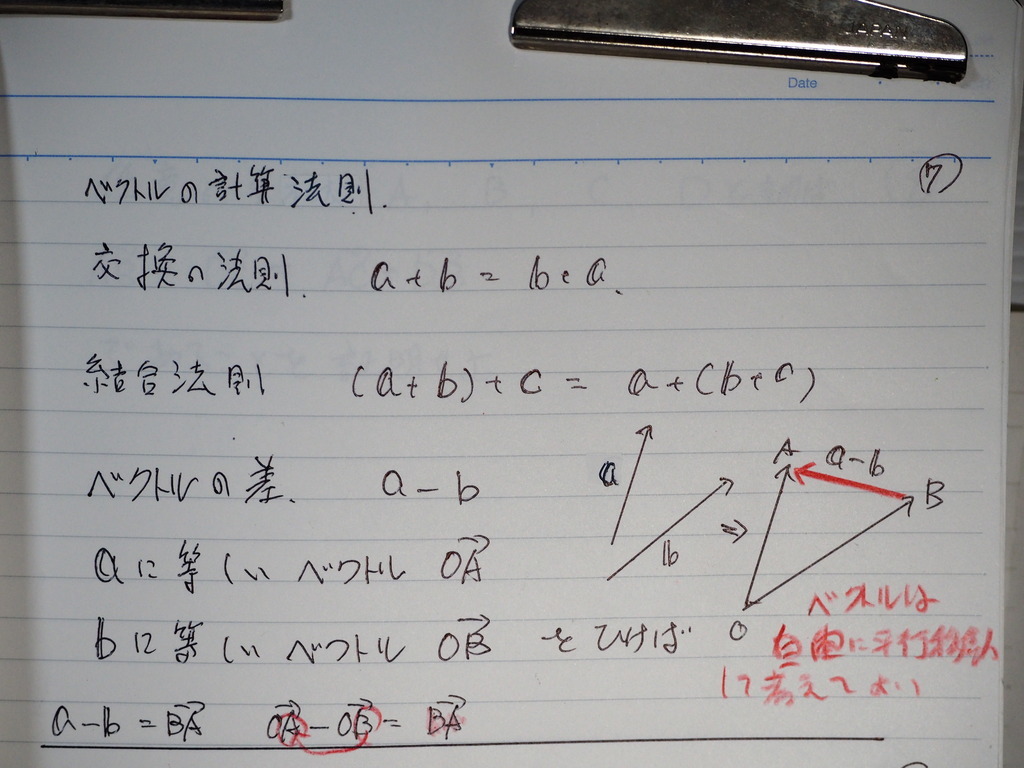 JAPAN
Date
⑦
ベクトルの計算法則.
交換の法則. a+b = b+a.
結合法則 (a+b)+c = a+(b+c)
ベクトルの差. a-b
aに等しいベクトル \overrightarrow{OA}
bに等しいベクトル \overrightarrow{OB} をひけば
a-b = \overrightarrow{BA} \overrightarrow{OA} - \overrightarrow{OB} = \overrightarrow{BA}
a
b
⇒
A
a-b
B
O
ベクトルは
自由に平行移動
して考えてよい